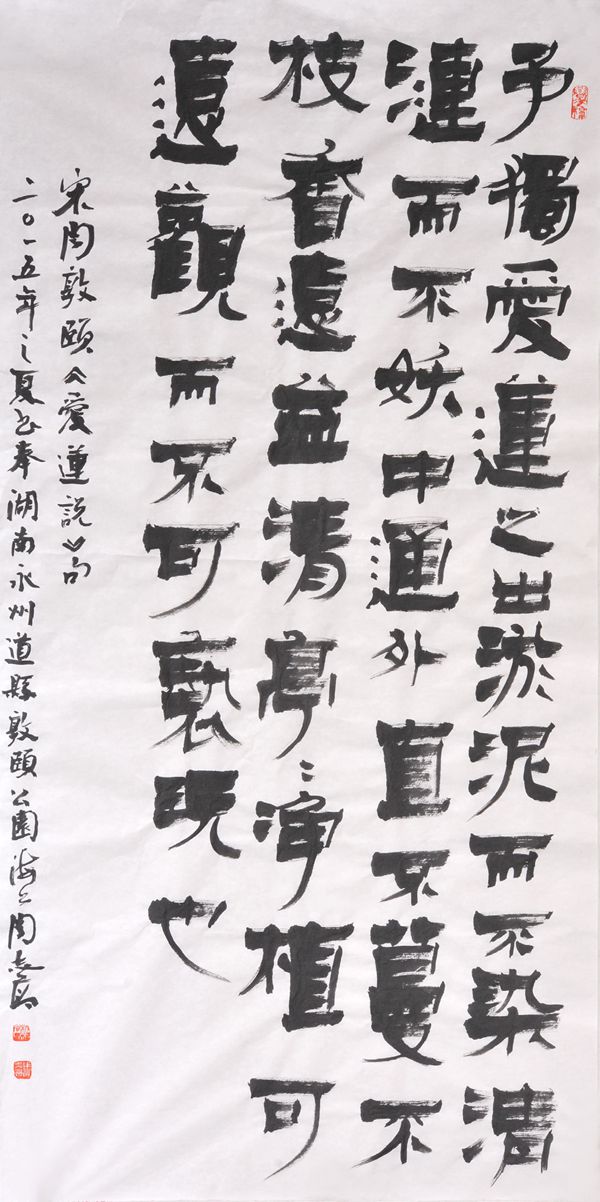 予獨愛蓮之出淤泥而不染清
漣而不妖中通外直不蔓不
枝香遠益清亭〻淨植可
遠觀而不可褻玩也
宋周敦頤《愛蓮説》句
二〇一五年之夏书奉湖南永州道縣敦頤公園海上周志高